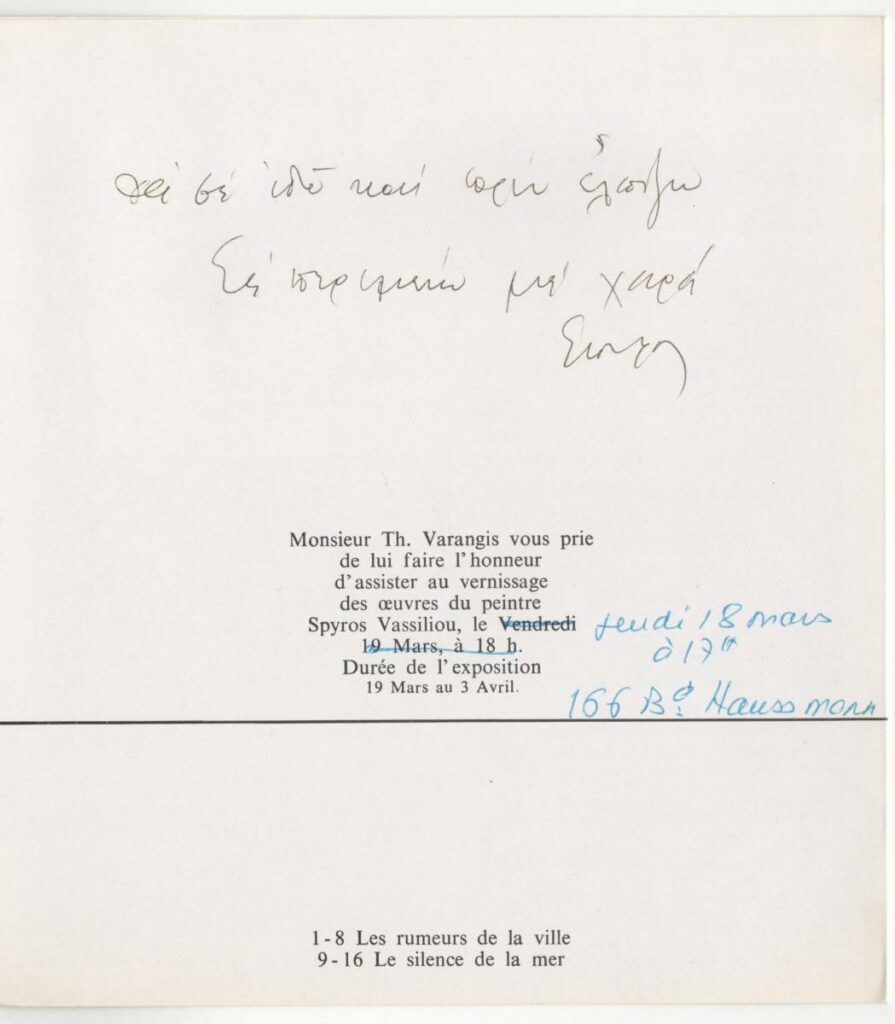 Θά σέ ἰδῶ καί πρίν ἐλπίζω
Σέ περιμένω μέ χαρά
Monsieur Th. Varangis vous prie
de lui faire l'honneur
d'assister au vernissage
des œuvres du peintre
Spyros Vassiliou, le Vendredi jeudi 18 mars
19 Mars, à 18 h. à 17 h
Durée de l'exposition
19 Mars au 3 Avril.
166 Bd. Haussmann
1-8 Les rumeurs de la ville
9-16 Le silence de la mer